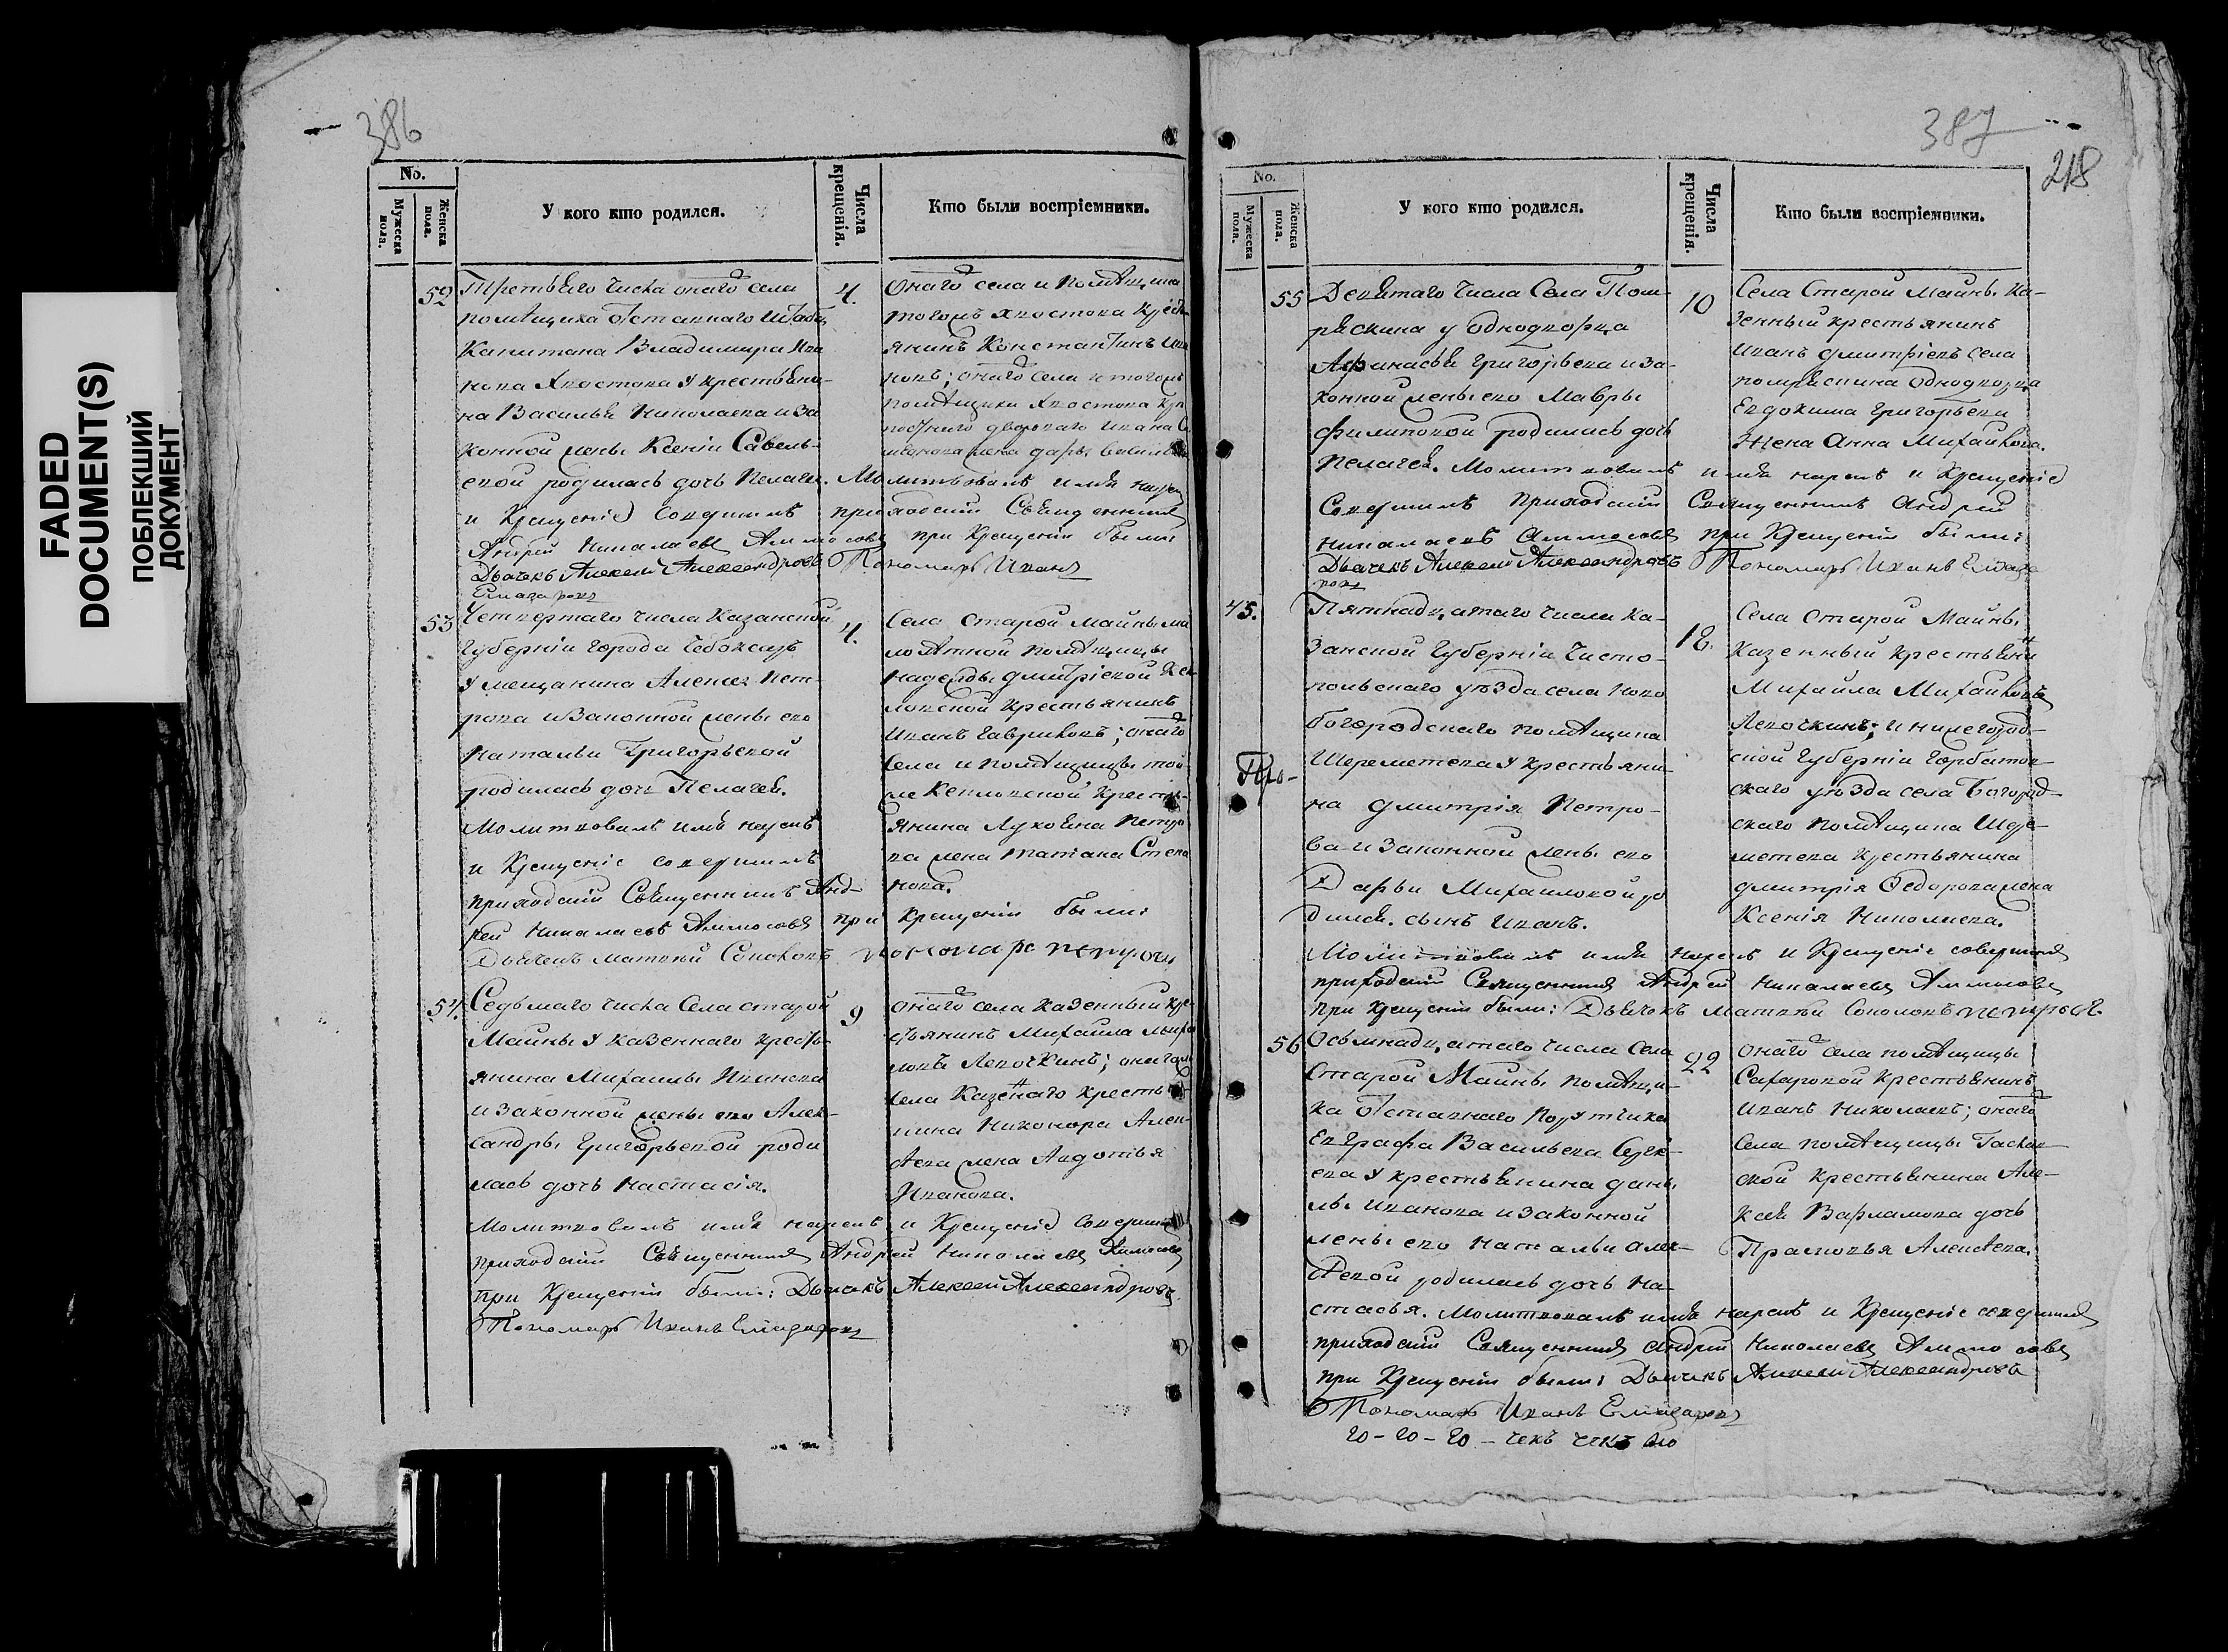 FADED
DOCUMENT(S)
ПОБЛЕКШИЙ
ДОКУМЕНТ
386
No.
Мужеска пола.
Женска пола.
У кого кто родился.
Числа крещенія.
Кто были воспріемники.
52
Третьяго числа онаго села
помѣщика отставнаго штабсъ
Капитана Владимира Ива
нова Хвостова у крестьяни-
на Василья Николаева и за
конной жены Ксеніи Савель-
евой родилась дочь Пелагея. Молитвовалъ имя нарекъ
и Крещеніе совершилъ приходскій Священникъ
Андрей Николаевъ Аммосовъ при Крещеніи были:
Дьячекъ Алексей Александровъ Пономарь Иванъ
Елпазаровъ
4.
Онаго села и помѣщика
тогожъ Хвостова крест
янинъ Константинъ Ива
новъ; онаго села и тогожъ
помѣщика Хвостова
двороваго Ивана
жена Дарья
53
Четвертаго числа Казанской
Губерніи города Чебоксаръ
у мещанина Алексея Пет-
рова и законной жены его
Натальи Григорьевой
родилась дочь Пелагея.
Молитвовалъ имя нарекъ
и Крещеніе совершилъ
приходскій Священникъ Анд-
рей Николаевъ Аммосовъ при Крещеніи были:
Дьячекъ Матвей Соколовъ пономарь петровъ
4.
Села Старой Майны
помѣщицы
Надежды Дмитріевой
крестьянинъ
Иванъ Гавриловъ; онаго
села и помѣщицы той
же крест
янина Лукояна Петро
ва жена Татіана Степа
нова.
54.
Седьмаго числа Села Старой
Майны у казеннаго крест-
янина Михаилы Иванова
и законной жены его Алек-
сандры Григорьевой роди
лась дочь Настасія.
Молитвовалъ имя нарекъ и Крещеніе совершилъ
приходскій Священникъ Андрей Николаевъ Аммосовъ
при Крещеніи были: Дьячекъ Алексей Александровъ
Пономарь Иванъ Елпазаровъ
9
онаго села казенный кре
стьянинъ Михаила Михай
ловъ Левочкинъ; онагожъ
села Казенаго кресть
янина Никонора Алек-
сѣева жена Авдотья
Иванова.
387
218
No.
Мужеска пола.
Женска пола.
У кого кто родился.
Числа крещенія.
Кто были воспріемники.
55
Девятаго числа Села Пом-
ряскина у однодворца
Афанасья Григорьева и за-
конной жены его Мавры
Филиповой родилась дочь
Пелагея. Молитвовалъ имя нарекъ и Крещеніе
Совершилъ приходскій Священникъ Андрей
Николаевъ Аммосовъ при Крещеніи были:
Дьячекъ Алексей Александровъ Пономарь Иванъ Елпаза
ровъ
10
Села Старой Майны Ка-
зенный крестьянинъ
Иванъ Дмитріевъ села
помряскина однодворца
Евдокима Григорьева
Жена Анна Михайлова.
45.
Пятнадцатаго числа Ка-
занской Губерніи Чисто-
польскаго уѣзда села Ново
богородскаго помѣщика
Шереметева у крестьяни-
на Дмитрія Петро-
ва и законной жены его
Дарьи Михайловой ро
дился сынъ Иванъ.
Молитвовалъ имя нарекъ и Крещеніе совершилъ
приходскій Священникъ Андрей Николаевъ Аммосовъ
при Крещеніи были: Дьячокъ Матвей Соколовъ петровъ.
18.
Села Старой Майны
Казенный крестьянинъ
Михаила Михайловъ
Левочкинъ; и нижегород-
ской Губерніи Горбатов-
скаго уѣзда села Богород-
скаго помѣщика Шере-
метева крестьянина
Дмитрія Федорова жена
Ксенія Николаева.
Про-
56
Осьмнадцатаго числа Села
Старой Майны помѣщи-
ка отставнаго Порутчика
Евграфа Васильева Сергѣ-
ева у крестьянина Дани
лы Иванова и законной
жены его Натальи Алек-
сѣевой родилась дочь На-
стасья. Молитвовалъ имя нарекъ и Крещеніе совершилъ
приходскій Священникъ Андрей Николаевъ Аммосовъ
при Крещеніи были: Дьячекъ Алексей Александровъ
Пономарь Иванъ Елпазаровъ
22
онаго села помѣщицы
Сахаровой крестьянинъ
Иванъ Николаевъ; онаго
Села помѣщицы
ской крестьянина Але-
ксея Варламова дочь
Прасковья Алексѣева.